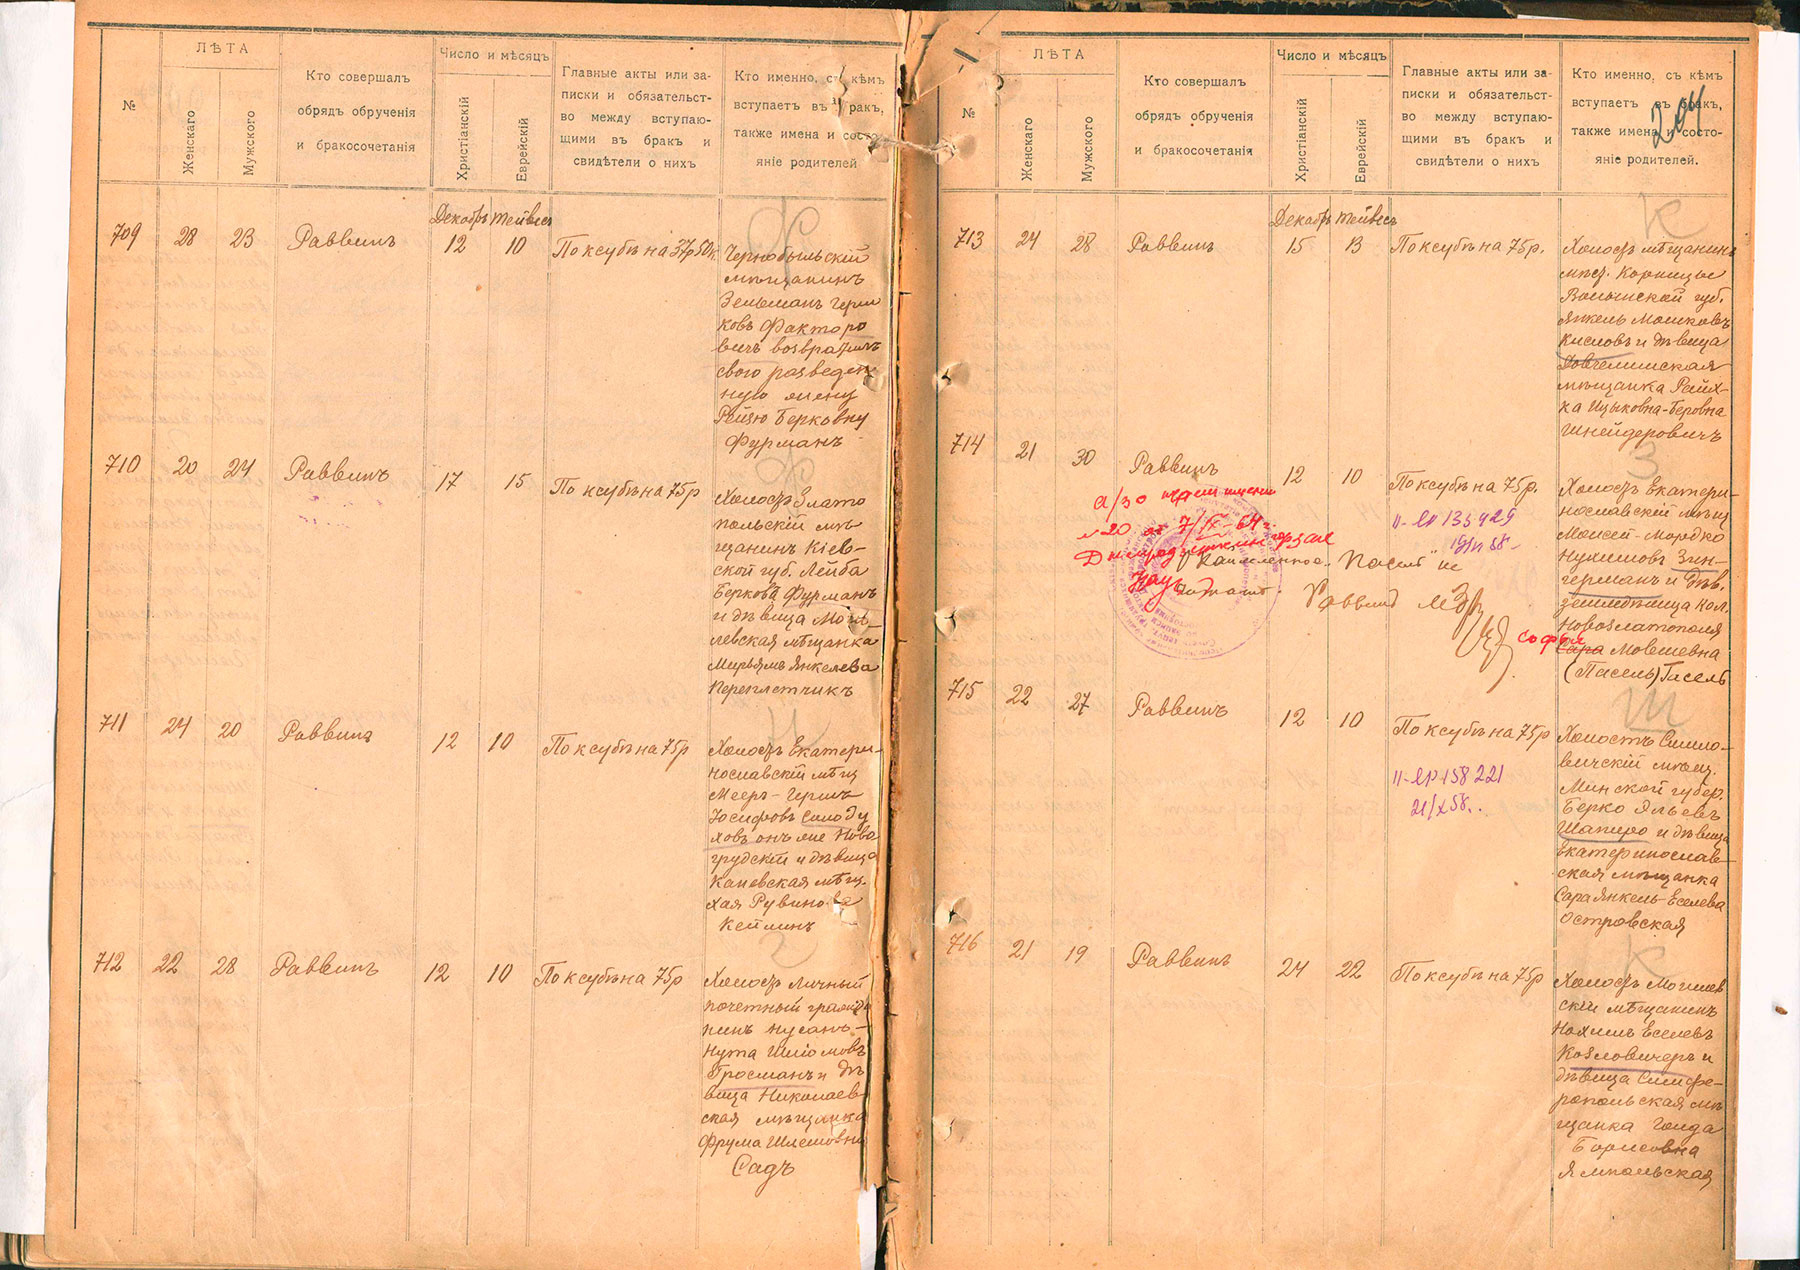 №
ЛѢТА
Женскаго
Мужского
Кто совершалъ
обрядъ обрученія
и бракосочетанія
Число и мѣсяцъ
Христіанскій
Еврейскій
Главные акты или за-
писки и обязательст-
во между вступаю-
щими въ бракъ и
свидѣтели о нихъ
Кто именно, съ кѣмъ
вступаетъ въ бракъ,
также имена и состо-
яніе родителей
Декабрь Тейвесъ
709 28 23 Раввинъ 12 10 По ксубѣ на 37р50к.
Чернобыльскій
мѣщанинъ
Зельманъ Герш
ковъ Факторо
вичъ возвратилъ
свою разведен
ную жену
Рейзю Берковну
Фурманъ
710 20 24 Раввинъ 17 15 По ксубѣ на 75р
Холостъ Злато
польскій мѣ-
щанинъ Кіев-
ской губ. Лейба
Берковъ Фурманъ
и дѣвица Моги-
левская мѣщанка
Мирьямъ Янкелева
Переплетчикъ
711 24 20 Раввинъ 12 10 По ксубѣ на 75р
Холостъ Екатери-
нославскій мѣщ
Мееръ-Гершъ
Іосифовъ Солоду
ховъ онъ же Ново
грудскій и дѣвица
Каневская мѣщ.
Хая Рувинова
Кейлинъ
712 22 28 Раввинъ 12 10 По ксубѣ на 75р
Холостъ личный
почетный гражда
нинъ Нусанъ-
Нута Шліомовъ
Гросманъ и дѣ
вица Николаев-
ская мѣщанка
Фрума Шлемовна
Садъ
№
ЛѢТА
Женскаго
Мужского
Кто совершалъ
обрядъ обрученія
и бракосочетанія
Число и мѣсяцъ
Христіанскій
Еврейскій
Главные акты или за-
писки и обязательст-
во между вступаю-
щими въ бракъ и
свидѣтели о нихъ
Кто именно, съ кѣмъ
вступаетъ въ бракъ,
также имена и состо-
яніе родителей.
204
Декабрь Тейвесъ
К
713 24 28 Раввинъ 15 13 По ксубѣ на 75р.
Холостъ мѣщанинъ
мѣст. Корницы
Волынской губ.
Янкель Мошковъ
Кисловъ и дѣвица
мѣщанка Рейх-
ка Ицыковна-Беровна
Шнейдеровичъ
З
714 21 30 Раввинъ 12 10 По ксубѣ на 75р.
Холостъ Екатери-
нославскій мѣщ
Моисей-Мордко
Нухимовъ Зин-
германъ и дѣв.
земледѣлица кол.
Новозлатополя
Софья
Сара Мовшевна
(Пасель) Гасель
№20 от 7/IX-64 г.
Раввинъ
Ш
715 22 27 Раввинъ 12 10 По ксубѣ на 75р
21/X 58.
Холостъ Смило-
вичскій мѣщ.
Минской губер.
Берко Яльевъ
Шапиро и дѣвица
Екатеринослав-
ская мѣщанка
Сара Янкель-Еселева
Островская
К
716 21 19 Раввинъ 24 22 По ксубѣ на 75р
Холостъ Могилев
скій мѣщанинъ
Нохимъ Еселевъ
Козловичеръ и
дѣвица Симфе-
ропольская мѣ
щанка Голда
Борисовна
Ямпольская